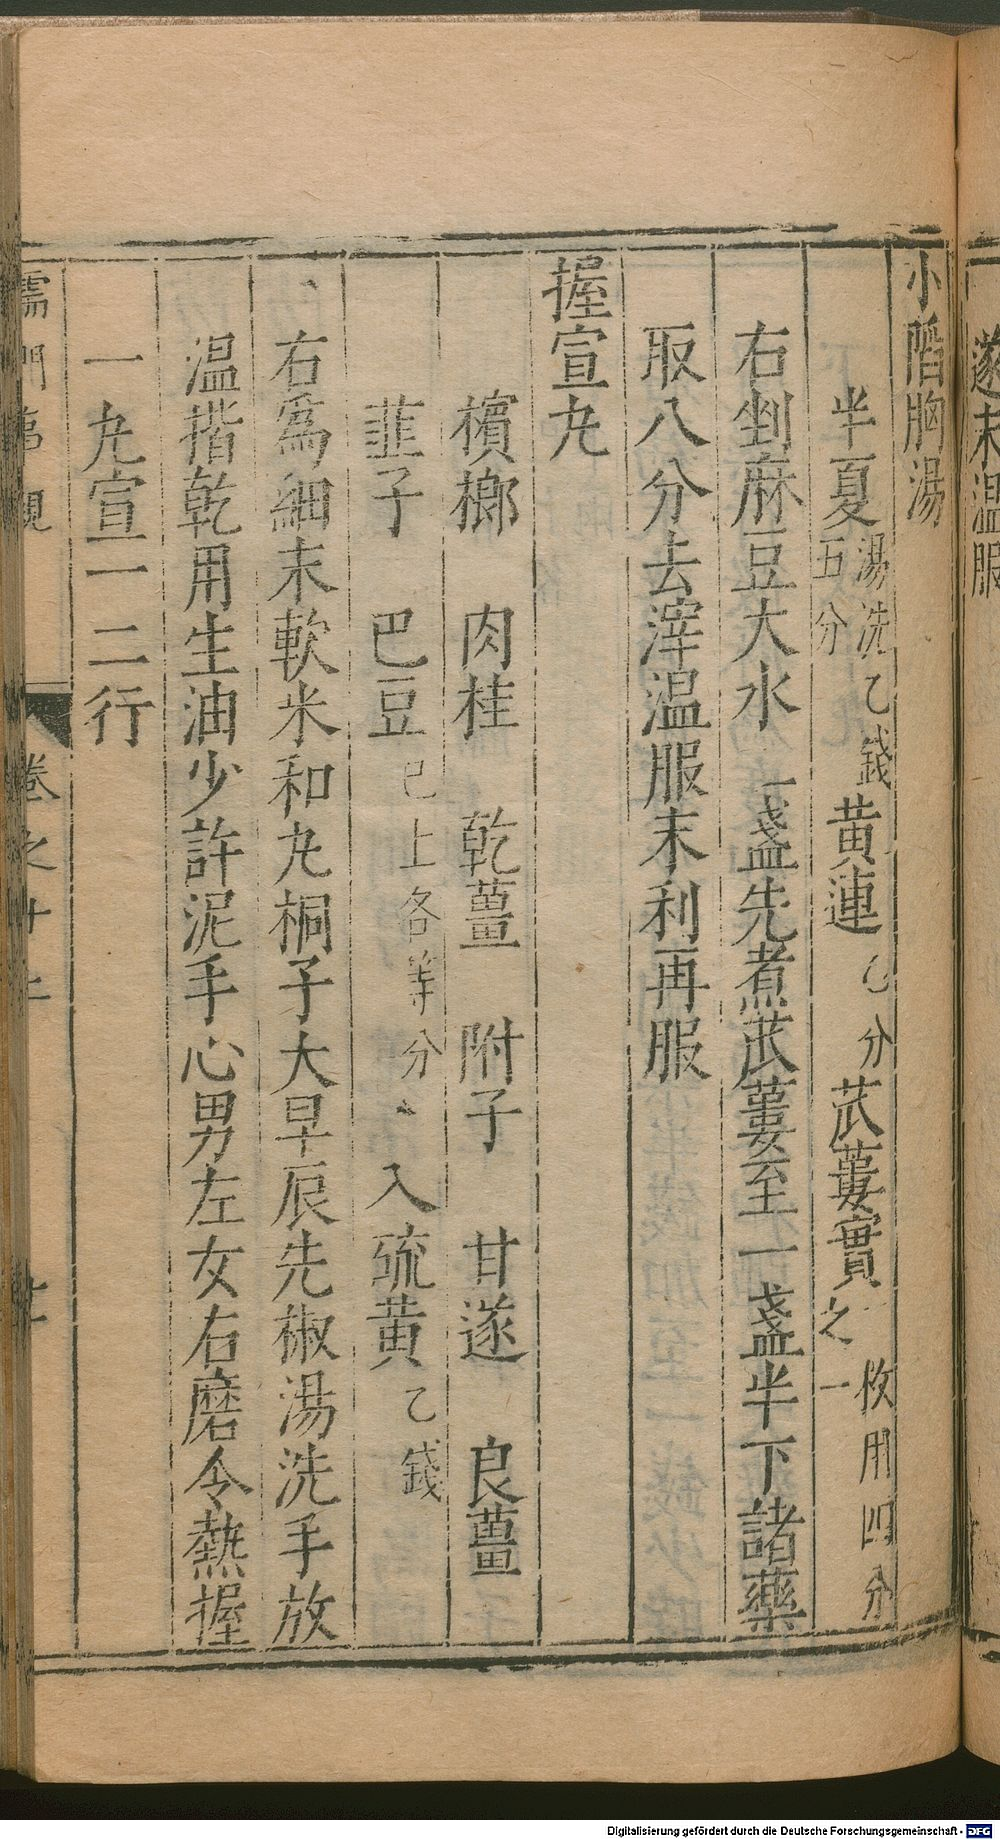 遂末温服
小䧟胸湯
半夏湯洗乙錢五分黄連乙分苽蔞實枚用四分之一
右剉麻豆大水一盞先煮苽蔞至一盞半下諸藥
取八分去滓温服末利再服
握宣丸
檳榔 肉桂 乾薑 附子 甘遂 良薑
韮子 巴豆已上各等分 入硫黄乙錢
右爲細末軟米和丸桐子大早辰先椒湯洗手放
温揩乾用生油少許泥手心男左女右磨令熱握
一丸宣一二行
儒門事親 卷之十二
Digitalisierung gefördert durch die Deutsche Forschungsgemeinschaft - DFG